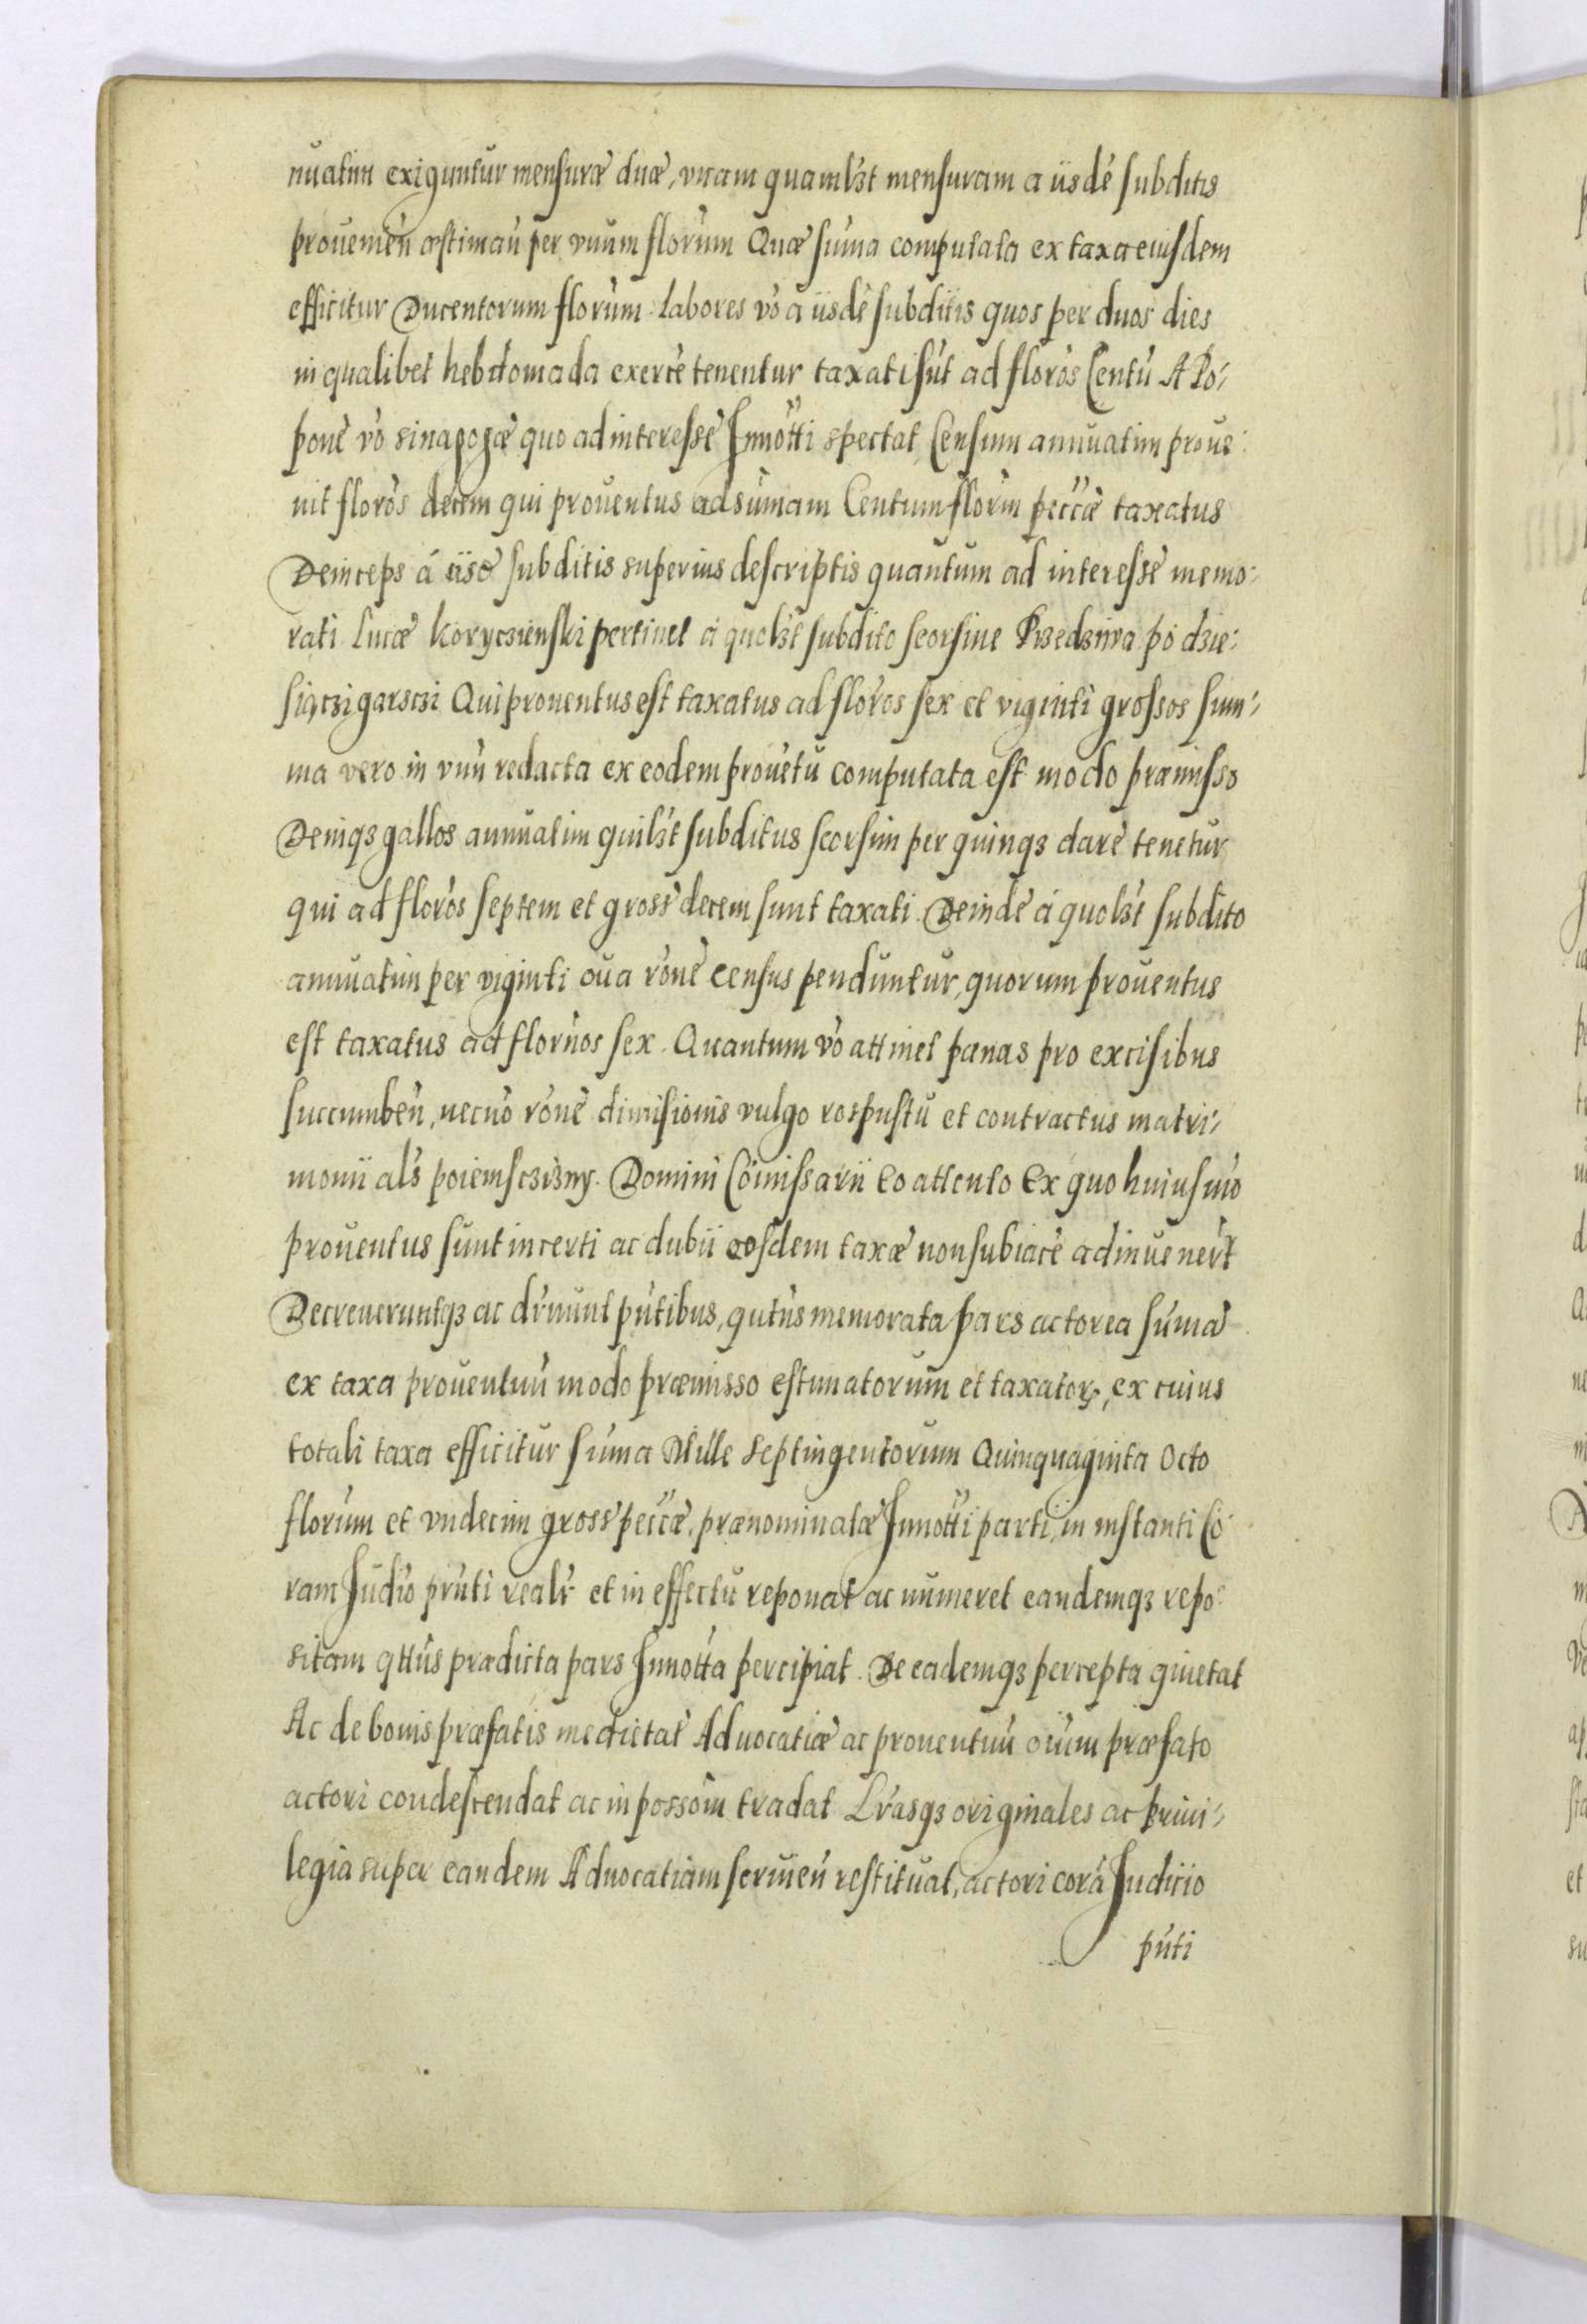 nuatim exiguntur mensuræ duæ, unam quamlꝫt mensuram a iisdē subditis
provenien̄ æstiman̄ per vnum flōrum Quæ sum̄a computata ex taxa eiusdem
efficitur Ducentorum flōrum. Labores vō a iisdē subditis quos per duos dies
in qualibet hebdomada exercē tenentur taxati sūt ad flōros Centū A Po-
ponē vō sinagogæ quo ad interesse Innōtti spectat Censum annuatim prove-
nit flōros decem qui proventus ad sūmam Centum flōrm pecc̄æ taxatus
Deinceps á iisd subditis superius descriptis quantum ad interesse memo-
rati Lucæ Koryczienski pertinet á quolꝫt subdito seorsine Przedziwa pō dzie-
siączi garsczi Qui proventus est taxatus ad flōros sex et viginti grossos sum-
ma vero in vnū redacta ex eodem provētū computata est modo præmisso
Deniqꝫ gallos annuatim quilꝫt subditus seorsim per quinqꝫ dare tenetur
qui ad flōros septem et gross̄ decem sunt taxati. Deinde á quolꝫt subdito
annuatim per viginti ova rōne census penduntur, quorum proventus
est taxatus ad flornos sex. Quantum vō attinet pænas pro excisibus
succumben̄, necnō rōne dimisionis vulgo rospustu et contractus matri-
monii alš poiemsczizny. Domini Cōmissarii eo attento Ex quo huiusmō
proventus sunt incerti ac dubii eosdem taxæ non subiacē adinvenerūt
Decreveruntqꝫ ac dr̄nunt pūtibus, qutn̄s memorata pars actorea sūmā
ex taxa proventuū modo præmisso estimatorum et taxatorꝝ, ex cuius
totali taxa efficitur sūma Mille Septingentorum Quinquaginta Octo
flōrum et vndecim gross̄ pecc̄æ, prænominatæ Innōtti parti, in instanti Co-
ram Judi͠o pn̄ti realr̄ et in effectu reponat ac numeret eandemqꝫ repo-
sitam qtt̄us prædicta pars Innōtta percipiat. De eademqꝫ percepta qiuetat
Ac de bonis præfatis medietat̄ Advocatiæ ac proventuū oīum præfato
actori condescendat ac in possōm tradat Lr̄asqꝫ originales ac privi-
legia super eandem Advocatiam servien̄ restituat, actori corā Judicio
pūti